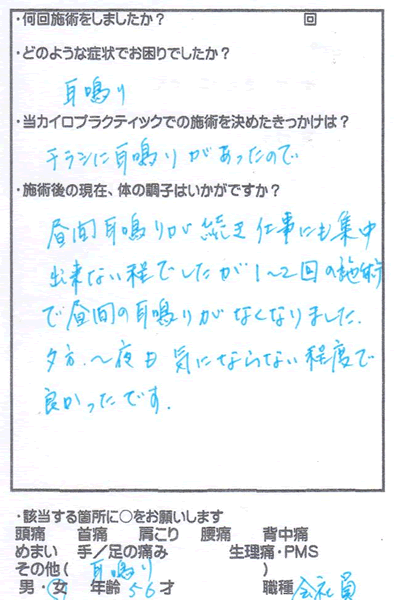 ・何回施術をしましたか？ 回
・どのような症状でお困りでしたか？
耳鳴り
・当カイロプラクティックでの施術を決めたきっかけは？
チラシに耳鳴りがあったので
・施術後の現在、体の調子はいかがですか？
昼間耳鳴りが続き仕事にも集中
出来ない程でしたが1〜2回の施術
で昼間の耳鳴りがなくなりました.
夕方.〜夜も気にならない程度で
良かったです.
・該当する箇所に○をお願いします
頭痛 首痛 肩こり 腰痛 背中痛
めまい 手／足の痛み 生理痛・PMS
その他( 耳鳴り )
男・女 年齢 56 才 職種 会社員